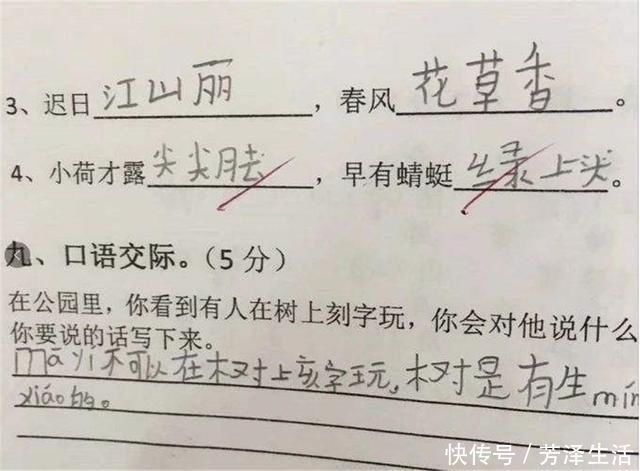 3、迟日江山丽，春风花草香。
4、小荷才露尖尖脚，早有蜻蜓绿上尖。
九、口语交际。（5分）
在公园里，你看到有人在树上刻字玩，你会对他说什么
你要说的话写下来。
mā yi不可以在树上刻字玩，树是有生mín
xiáo的。
快传号／芳泽生活